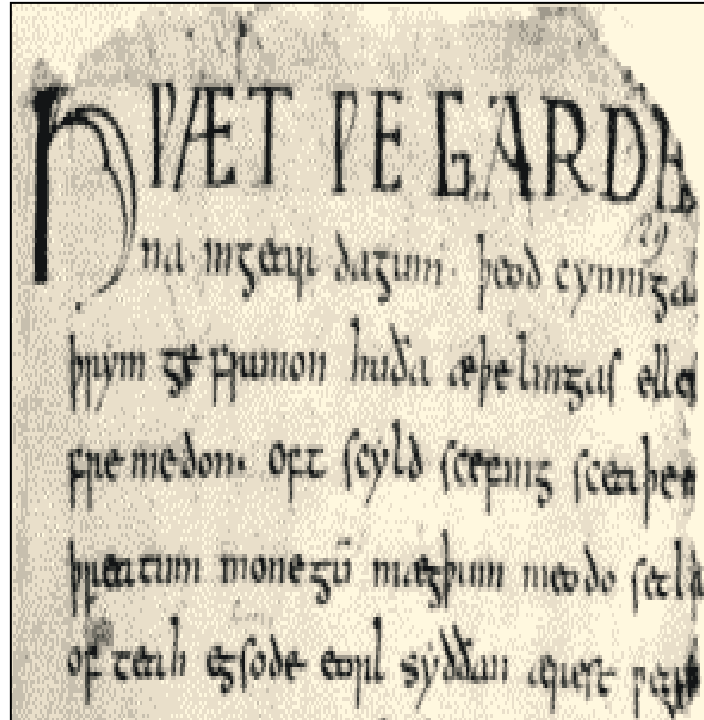 HǷÆT ǷE GARDE
na ingear dagum. þeod cyninga
þrym gefrunon huða æþelingas ellen
fremedon. oft scyld scefing sceaþen
þreatum monegū mægþum meodo setla
of teah egsode eorl syððan ærest ƿearð